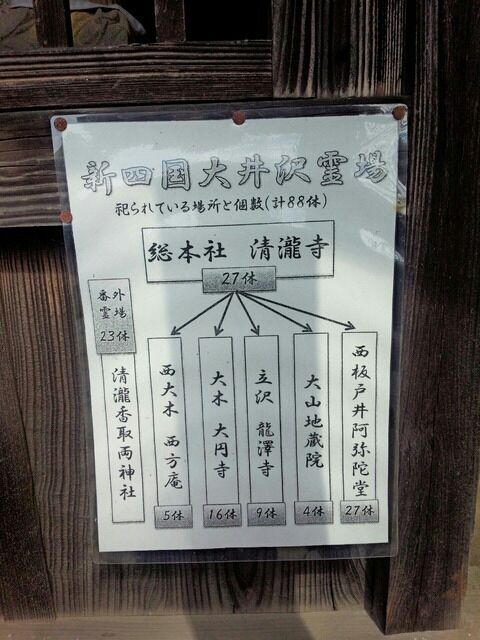 新四国大井沢霊場
祀られている場所と個数(計88体)
総本社 清瀧寺
27体
番外
霊場
23体
清瀧香取両神社
西大木 西方庵
5体
大木 大円寺
16体
立沢 龍澤寺
9体
大山地蔵院
4体
西板戸井阿弥陀堂
27体